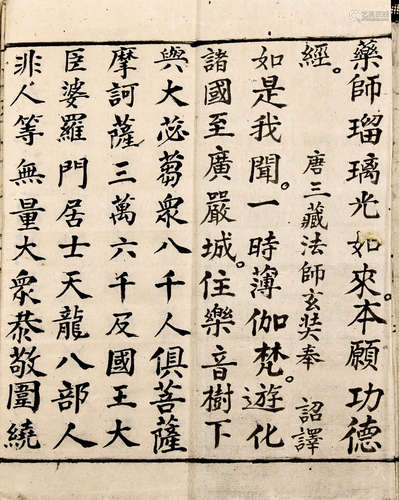 藥師瑠璃光如來。本願功德
經。
唐三藏法師玄奘奉　詔譯
如是我聞。一時薄伽梵。遊化
諸國至廣嚴城。住樂音樹下
與大苾蒭眾八千人俱菩薩
摩訶薩三萬六千及國王大
臣婆羅門居士天龍八部人
非人等無量大眾恭敬圍繞